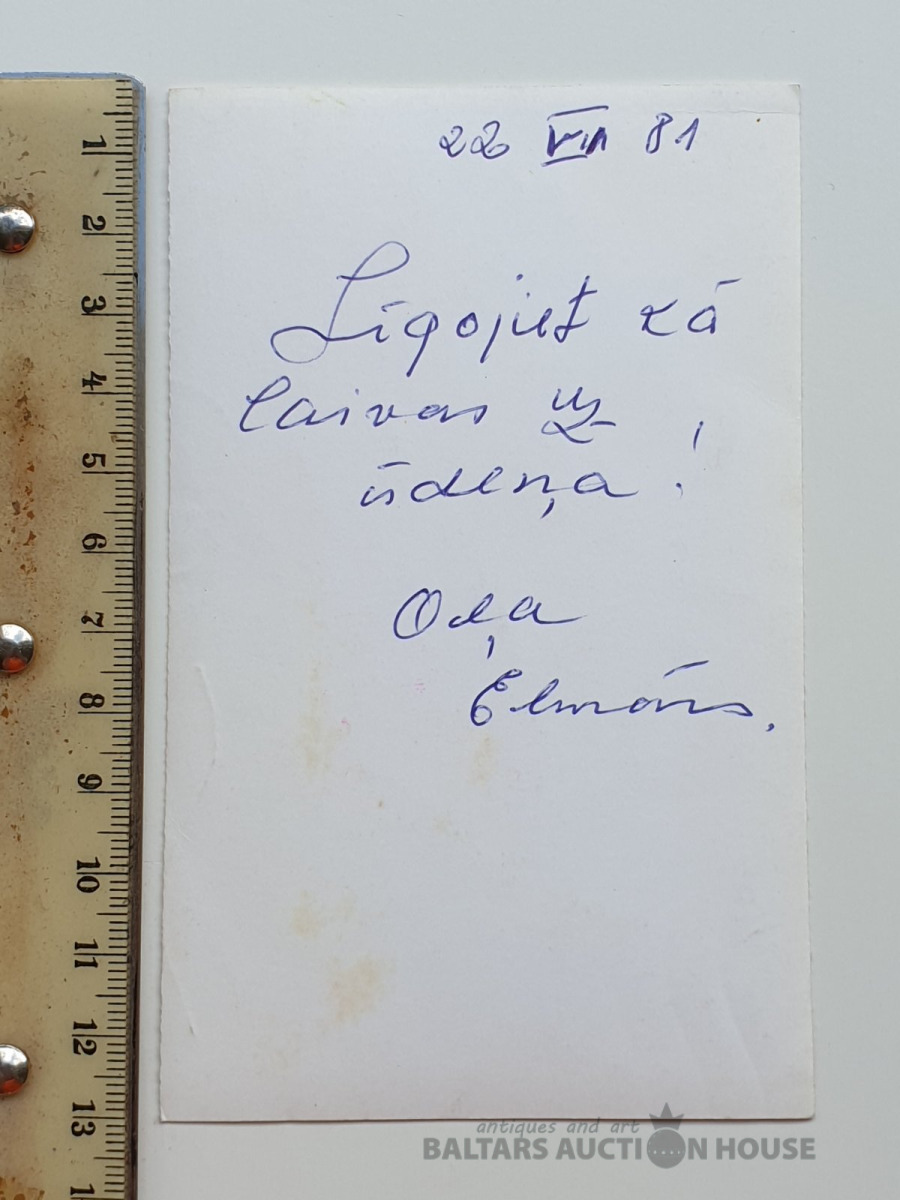 22 VIII 81
Līgojiet kā
laivas uz
ūdeņa!
Oļa
Elmārs.
1
2
3
4
5
6
7
8
9
10
11
12
13
antiques and art
BALTARS AUCTION HOUSE